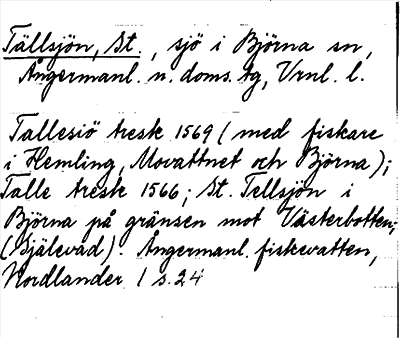 Tällsjön, St., sjö i Björna sn,
Ångermanl. n. doms. tg, Vrnl. l.
Tallesiö tresk 1569 (med fiskare
i Hemling, Movattnet och Björna);
Talle tresk 1566; St. Tellsjön i
Björna på gränsen mot Västerbotten;
(Själevad). Ångermanl. fiskevatten,
Nordlander 1 s. 24